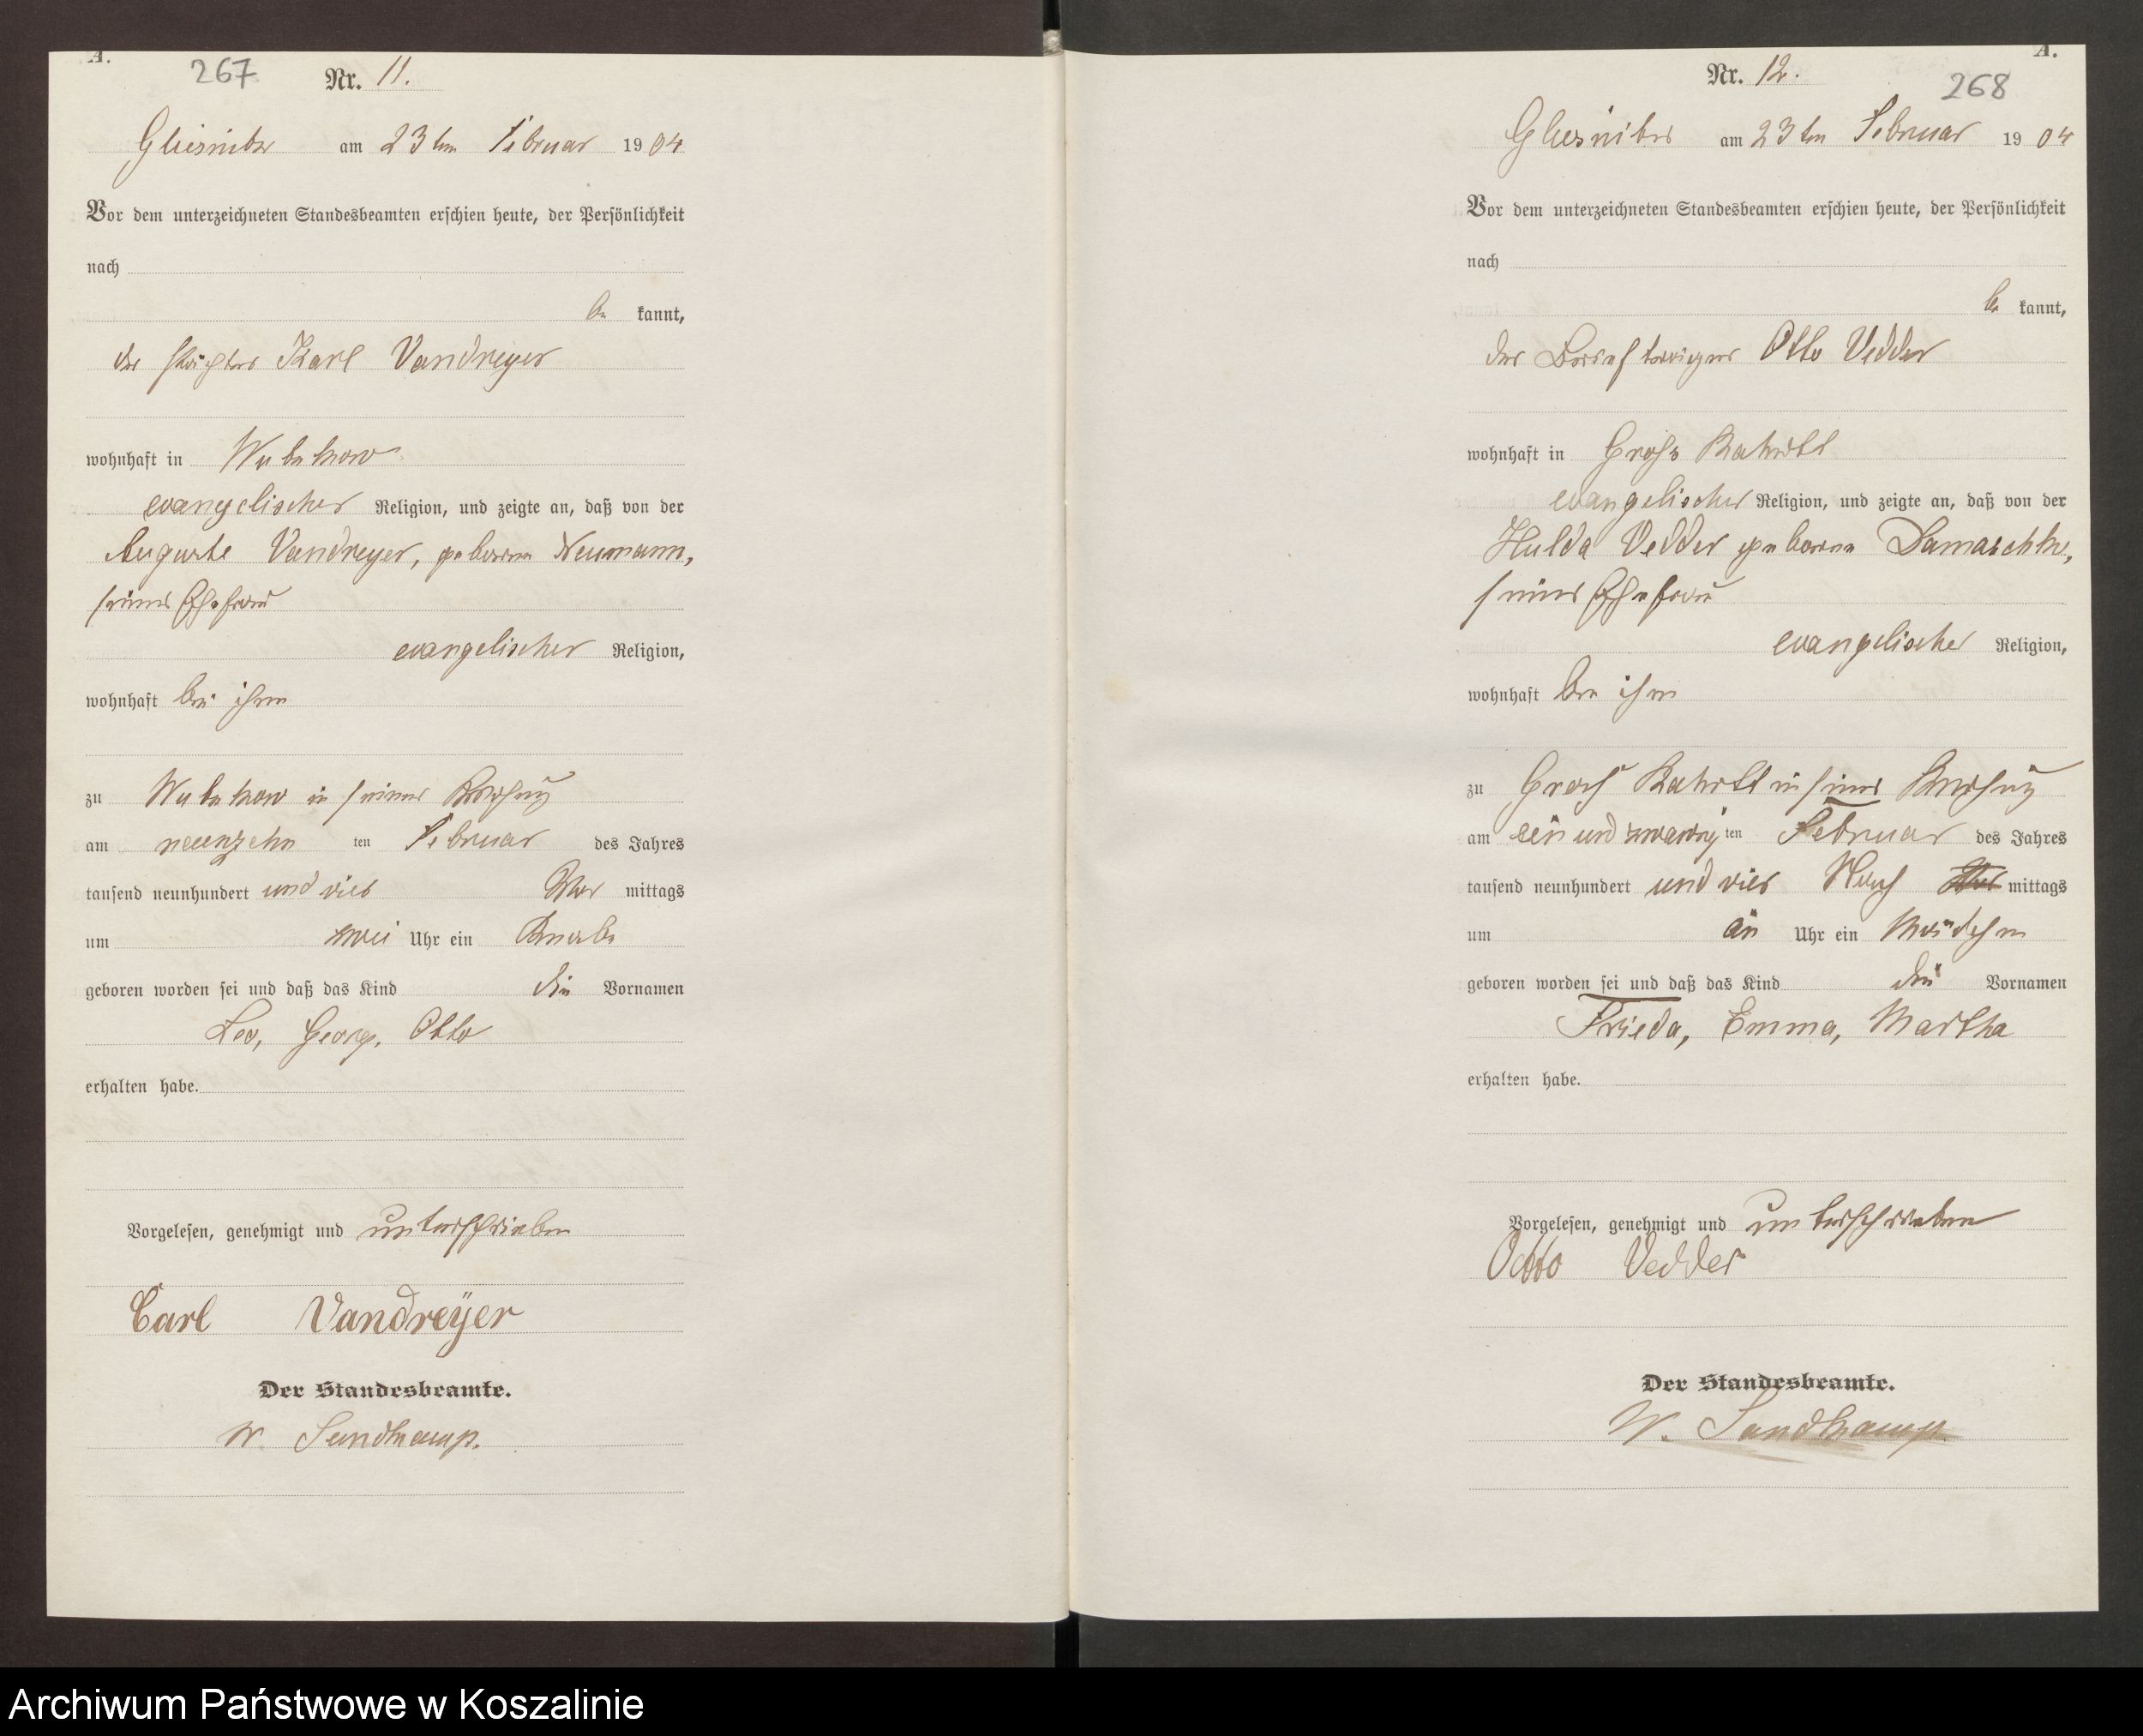 A.
267
Nr. 11.
Gliesnitz am 23ten Februar 1904
Vor dem unterzeichneten Standesbeamten erschien heute, der Persönlichkeit
nach
be kannt,
der Pächter Karl Vandreyer
wohnhaft in
evangelischer Religion, und zeigte an, daß von der
Auguste Vandreyer, geborene Neumann,
seiner Ehefrau
evangelischer Religion,
wohnhaft bei ihm
zu in seiner Behausung
am neunzehn ten Februar des Jahres
tausend neunhundert und vier Vor mittags
um zwei Uhr ein Knabe
geboren worden sei und daß das Kind die Vornamen
Leo, Georg, Otto
erhalten habe.
Vorgelesen, genehmigt und unterschrieben
Carl Vandreÿer
Der Standesbeamte.
W. Sandkamp.
A.
Nr. 12.
268
Gliesnitz am 23ten Februar 1904
Vor dem unterzeichneten Standesbeamten erschien heute, der Persönlichkeit
nach
be kannt,
der Briefträger Otto Vedder
wohnhaft in Gross Rakitt
evangelischer Religion, und zeigte an, daß von der
Hulda Vedder geborene Damaschke,
seiner Ehefrau
evangelischer Religion,
wohnhaft bei ihm
zu Gross Rakitt in seiner Behausung
am ein und zwanzig ten Februar des Jahres
tausend neunhundert und vier Nach mittags
um ein Uhr ein Mädchen
geboren worden sei und daß das Kind die Vornamen
Frieda, Emma, Martha
erhalten habe.
Vorgelesen, genehmigt und unterschrieben
Otto Vedder
Der Standesbeamte.
W. Sandkamp
Archiwum Państwowe w Koszalinie